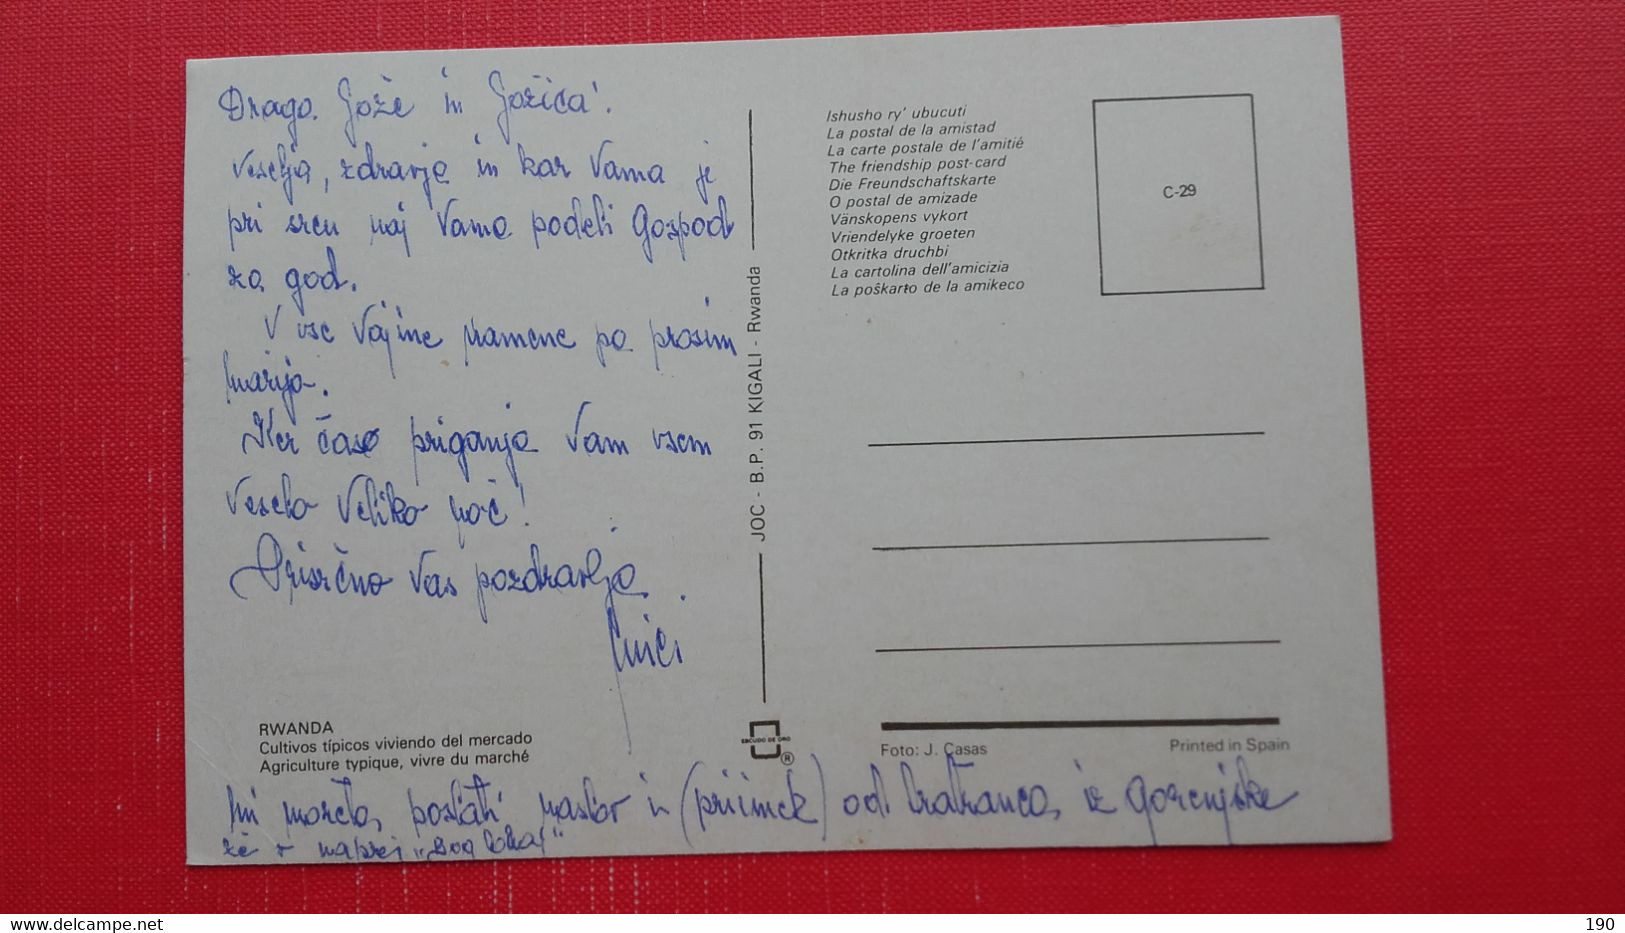 Draga Jože in Jožica!
Veselja, zdravja in kar Vama je
pri srcu naj Vama podeli Gospod
za god.
V vse Vajine namene pa prosim
Marijo.
Ker čas priganja Vam vsem
Veselo Veliko noč!
Prisrčno Vas pozdravlja
RWANDA
Cultivos típicos viviendo del mercado
Agriculture typique, vivre du marché
Mi moreta poslati naslov in (priimek) od Frafranca, iz Gorenjske
že v naprej „Bog lonaj“
JOC - B.P. 91 KIGALI - Rwanda
ESCUDO DE ORO
®
Ishusho ry' ubucuti
La postal de la amistad
La carte postale de l'amitié
The friendship post-card
Die Freundschaftskarte
O postal de amizade
Vänskopens vykort
Vriendelyke groeten
Otkritka druchbi
La cartolina dell'amicizia
La poŝkarto de la amikeco
C-29
Foto: J. Casas
Printed in Spain
delcampe.net
yugoslavia
190